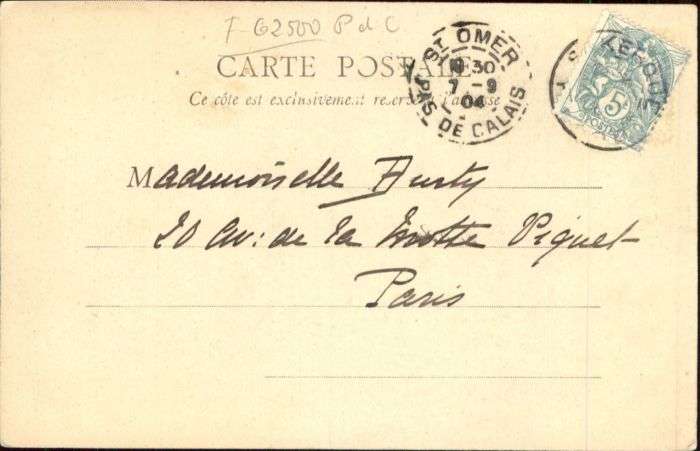 F-62500 P d C
CARTE POSTALE
Ce côté est exclusivement réservé à l'adresse
ST OMER
30
7-9
04
PAS DE CALAIS
5
POSTES
Mademoiselle
20 Av: de la Motte Piquet
Paris